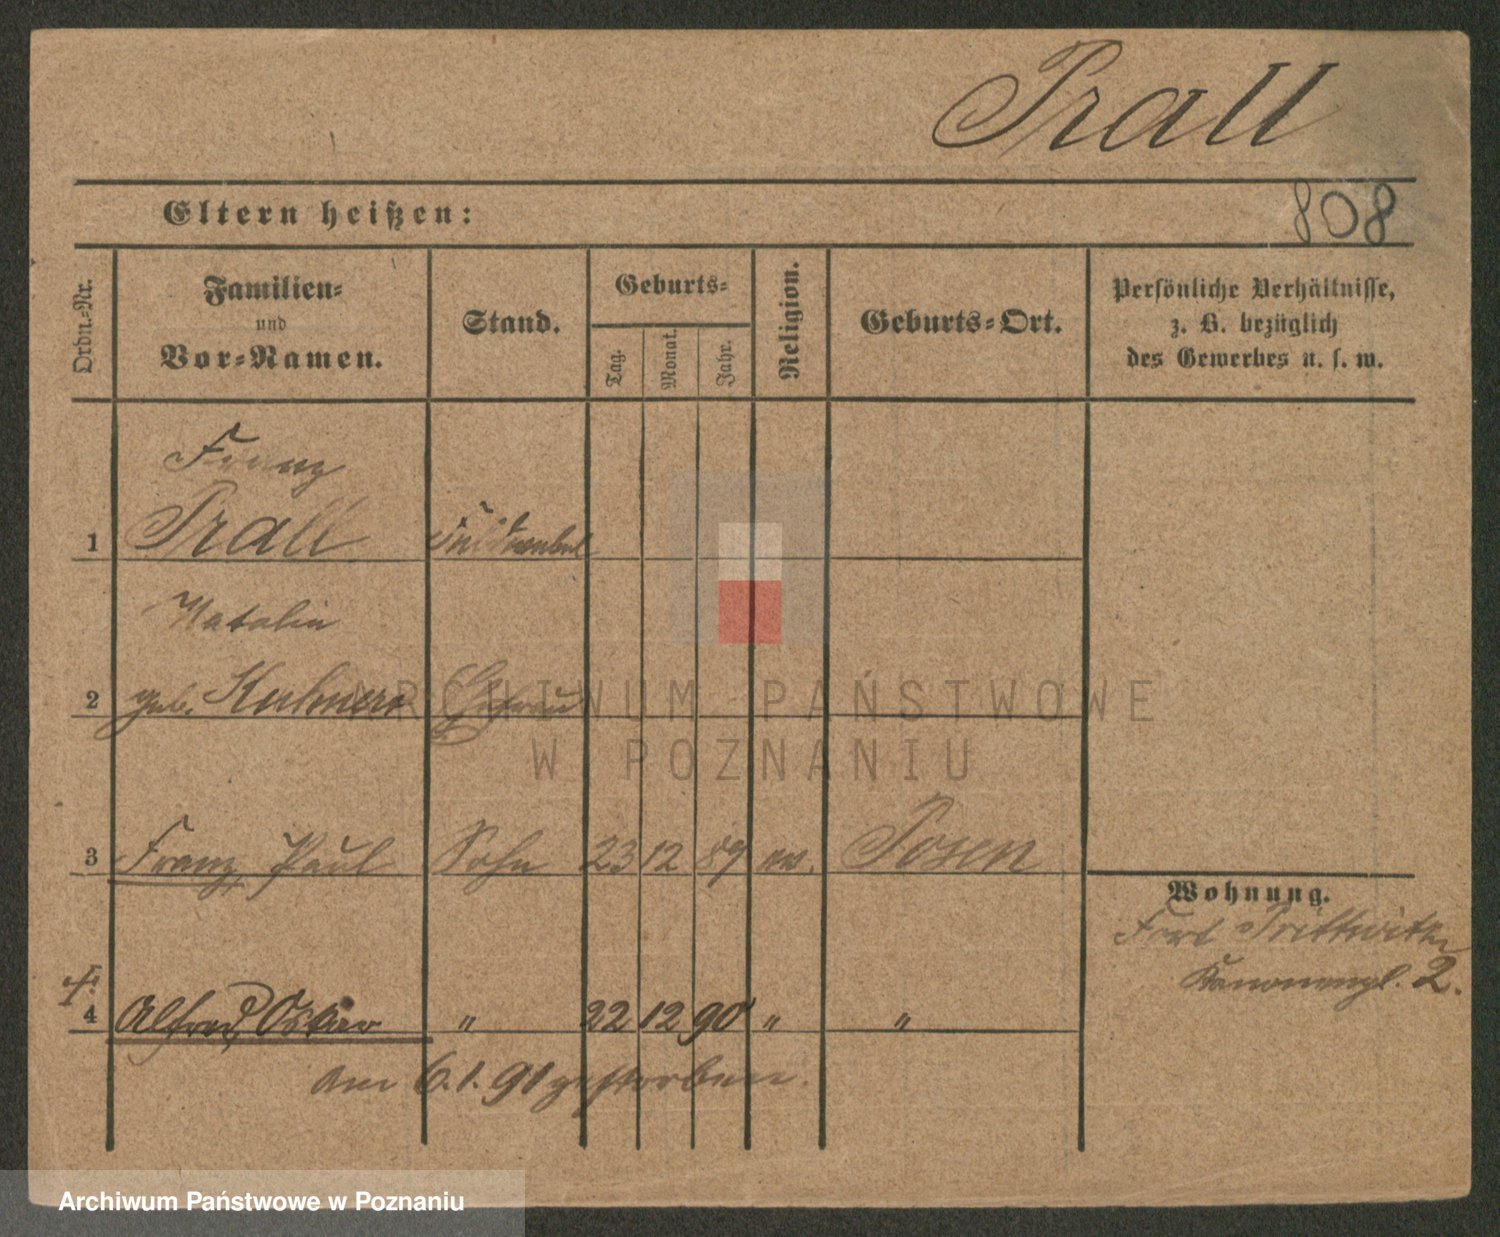 Prall
808
Eltern heißen:
Ordn.-Nr.
Familien-
und
Vor-Namen.
Stand.
Geburts-
Tag.
Monat.
Jahr.
Religion.
Geburts-Ort.
Persönliche Verhältnisse,
z. B. bezüglich
des Gewerbes u. s. w.
Franz
1 Prall Feldwebel
Natalie
2 geb. Ehefrau
3 Franz, Paul Sohn 23 12 89 ev. Posen
Wohnung.
Fort Prittwitz
Kanonenpl. 2.
4 Alfred, Oskar " 22 12 90 " "
am 6.1.91 gestorben.
ARCHIWUM PAŃSTWOWE
W POZNANIU
Archiwum Państwowe w Poznaniu